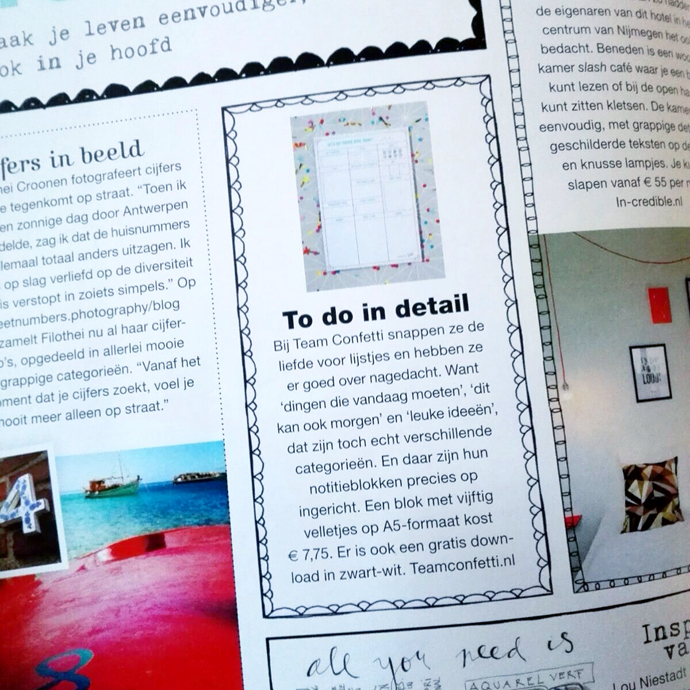 aak je leven eenvoudiger,
ok in je hoofd
fers in beeld
ei Croonen fotografeert cijfers
e tegenkomt op straat. “Toen ik
en zonnige dag door Antwerpen
delde, zag ik dat de huisnummers
lemaal totaal anders uitzagen. Ik
op slag verliefd op de diversiteit
is verstopt in zoiets simpels.” Op
eetnumbers.photography/blog
zamelt Filothei nu al haar cijfer-
o’s, opgedeeld in allerlei mooie
grappige categorieën. “Vanaf het
ment dat je cijfers zoekt, voel je
nooit meer alleen op straat.”
4
8
To do in detail
Bij Team Confetti snappen ze de
liefde voor lijstjes en hebben ze
er goed over nagedacht. Want
‘dingen die vandaag moeten’, ‘dit
kan ook morgen’ en ‘leuke ideeën’,
dat zijn toch echt verschillende
categorieën. En daar zijn hun
notitieblokken precies op
ingericht. Een blok met vijftig
velletjes op A5-formaat kost
€ 7,75. Er is ook een gratis down-
load in zwart-wit. Teamconfetti.nl
de eigenaren van dit hotel in h
centrum van Nijmegen het
bedacht. Beneden is een
kamer slash café waar je een
kunt lezen of bij de open ha
kunt zitten kletsen. De kame
eenvoudig, met grappige de
geschilderde teksten op de
en knusse lampjes. Je k
slapen vanaf € 55 per
In-credible.nl
all you need is
AQUAREL VERF
Insp
va
Lou Niestadt